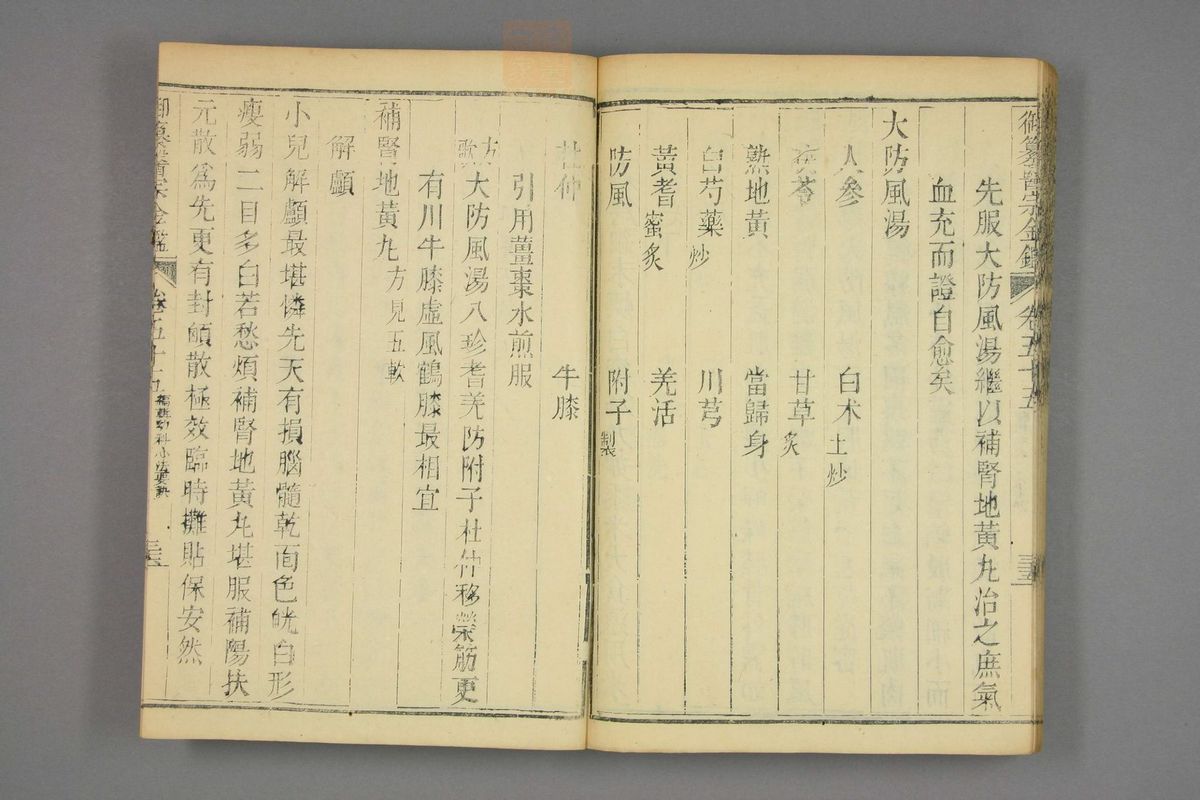 御纂醫宗金鑑 卷五十五
先服大防風湯繼以補腎地黃丸治之庶氣
血充而證自愈矣
大防風湯
人參 白术土炒
茯苓 甘草炙
熟地黃 當歸身
白芍藥炒 川芎
黃耆蜜炙 羌活
防風 附子製
杜仲 牛膝
引用薑棗水煎服
方歌 大防風湯八珍耆羌防附子杜仲移榮筋更
有川牛膝虛風鶴膝最相宜
補腎地黃丸方見五軟
解顱
小兒解顱最堪憐先天有損腦髓乾面色㿠白形
瘦弱二目多白若愁煩補腎地黃丸堪服補陽扶
元散為先更有封顖散極效臨時攤貼保安然
御纂醫宗金鑑 卷五十五